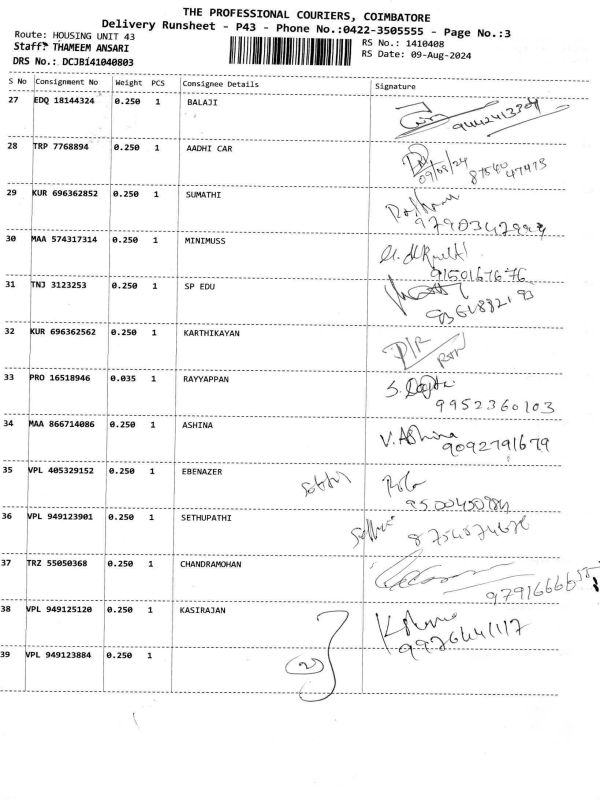 THE PROFESSIONAL COURIERS, COIMBATORE
Delivery Runsheet - P43 - Phone No.:0422-3505555 - Page No.:3
Route: HOUSING UNIT 43 RS No.: 1410408
Staff: THAMEEM ANSARI RS Date: 09-Aug-2024
DRS No.: DCJB141040803
S No Consignment No Weight PCS Consignee Details Signature
27 EDQ 18144324 0.250 1 BALAJI
28 TRP 7768894 0.250 1 AADHI CAR
09/08/24 87540 47473
29 KUR 696362852 0.250 1 SUMATHI
30 MAA 574317314 0.250 1 MINIMUSS
9150167676
31 TNJ 3123253 0.250 1 SP EDU
32 KUR 696362562 0.250 1 KARTHIKAYAN
33 PRO 16518946 0.035 1 RAYYAPPAN
9952360103
34 MAA 866714086 0.250 1 ASHINA
V. Ashina
9092791679
35 VPL 405329152 0.250 1 EBENAZER
36 VPL 949123901 0.250 1 SETHUPATHI
37 TRZ 55050368 0.250 1 CHANDRAMOHAN
38 VPL 949125120 0.250 1 KASIRAJAN
39 VPL 949123884 0.250 1